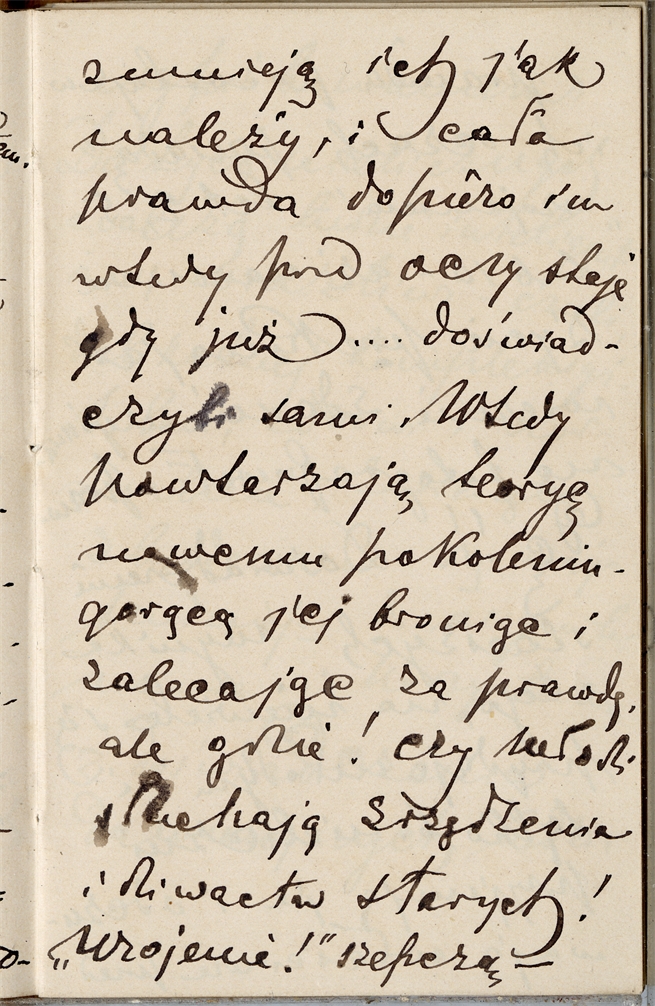 zmnieją ich jak
należy, i cała
prawda dopiéro im
wtedy pod oczy staje
gdy już .... doświad-
czyli sami. Wtedy
powtarzają teoryę
nowemu pokoleniu -
gorąco jej broniąc i
zalecając za prawdę,
ale gdzie! czy młodzi
słuchają zrzędzenia
i dziwactw starych!
"Urojenie!" szepczą -